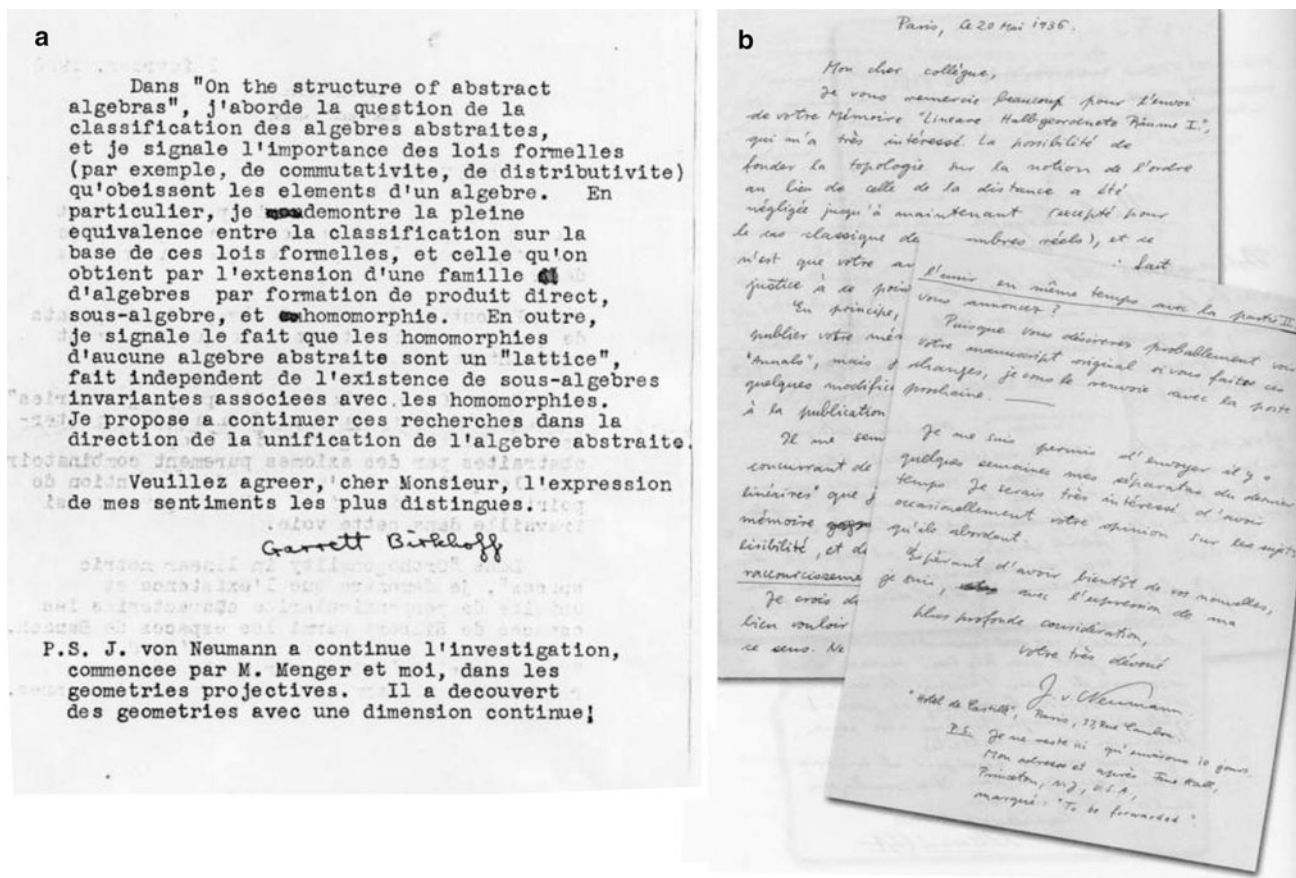 a
Dans "On the structure of abstract
algebras", j'aborde la question de la
classification des algebres abstraites,
et je signale l'importance des lois formelles
(par exemple, de commutativite, de distributivite)
qu'obeissent les elements d'un algebre. En
particulier, je demontre la pleine
equivalence entre la classification sur la
base de ces lois formelles, et celle qu'on
obtient par l'extension d'une famille
d'algebres par formation de produit direct,
sous-algebre, et homomorphie. En outre,
je signale le fait que les homomorphies
d'aucune algebre abstraite sont un "lattice",
fait independent de l'existence de sous-algebres
invariantes associees avec les homomorphies.
Je propose a continuer ces recherches dans la
direction de la unification de l'algebre abstraite.
Veuillez agreer, cher Monsieur, l'expression
de mes sentiments les plus distingues.
Garrett Birkhoff
P.S. J. von Neumann a continue l'investigation,
commencee par M. Menger et moi, dans les
geometries projectives. Il a decouvert
des geometries avec une dimension continue!
b
Paris, le 20 Mai 1936.
Mon cher collègue,
Je vous remercie beaucoup pour l'envoi
de votre Mémoire "Lineare Halbgeordnete Räume I.",
qui m'a très intéressé. La possibilité de
fonder la topologie sur la notion de l'ordre
au lieu de celle de la distance a été
négligée jusqu'à maintenant (excepté pour
le cas classique de mbres réels), et ce
n'est que votre fait
justice à ce
En principe,
publier votre
"Annals", mais
quelques
à la publication
Il me
concurrant de
linéaires" que
mémoire
lisibilité, et
Je crois
bien vouloir
ce sens. Ne
l'envoi en même temps avec la partie II
vous annoncez?
Puisque vous désirerez probablement
votre manuscript original si vous faites ces
changes, je vous le renvoie avec la poste
prochaine.
Je me suis permis d'envoyer il y a
quelques semaines mes séparatas du dernier
temps. Je serais très intéressé d'avoir
occasionellement votre opinion sur les sujets
qu'ils abordent.
Espérant d'avoir bientôt de vos nouvelles,
je suis, avec l'expression de ma
plus profonde considération,
votre très dévoué
J. v. Neumann.
"Hotel de Castille", Paris, Rue Cambon.
P.S. Je ne reste ici qu'environs 10 jours.
Mon adresse est après Fine Hall,
Princeton, N.J., U.S.A,
marqué: "To be forwarded".